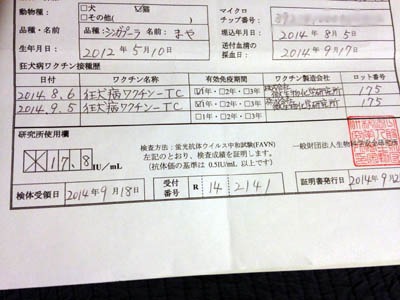 動物種： □犬 ☑猫
□その他( )
品種・名前 シンガプーラ まや
生年月日 2012年5月10日
マイクロ
チップ番号 392
埋込年月日 2014年8月5日
送付血清の
採血日 2014年9月17日
狂犬病ワクチン接種歴
日付 ワクチン名称 有効免疫期間 ワクチン製造会社 ロット番号
2014.8.6 狂犬病ワクチン-TC ☑1年・□2年・□3年 株式会社 微生物化学研究所 175
2014.9.5 狂犬病ワクチン-TC ☑1年・□2年・□3年 株式会社 微生物化学研究所 175
研究所使用欄
17.8 IU/mL
検査方法：蛍光抗体ウイルス中和試験(FAVN)
左記のとおり、検査成績を証明します。
(抗体価の基準は 0.5IU/mL 以上です)
一般財団法人生物科学安全研究所
検体受領日 2014年9月18日
受付
番号 R 14 2141
証明書発行日 2014年9月2